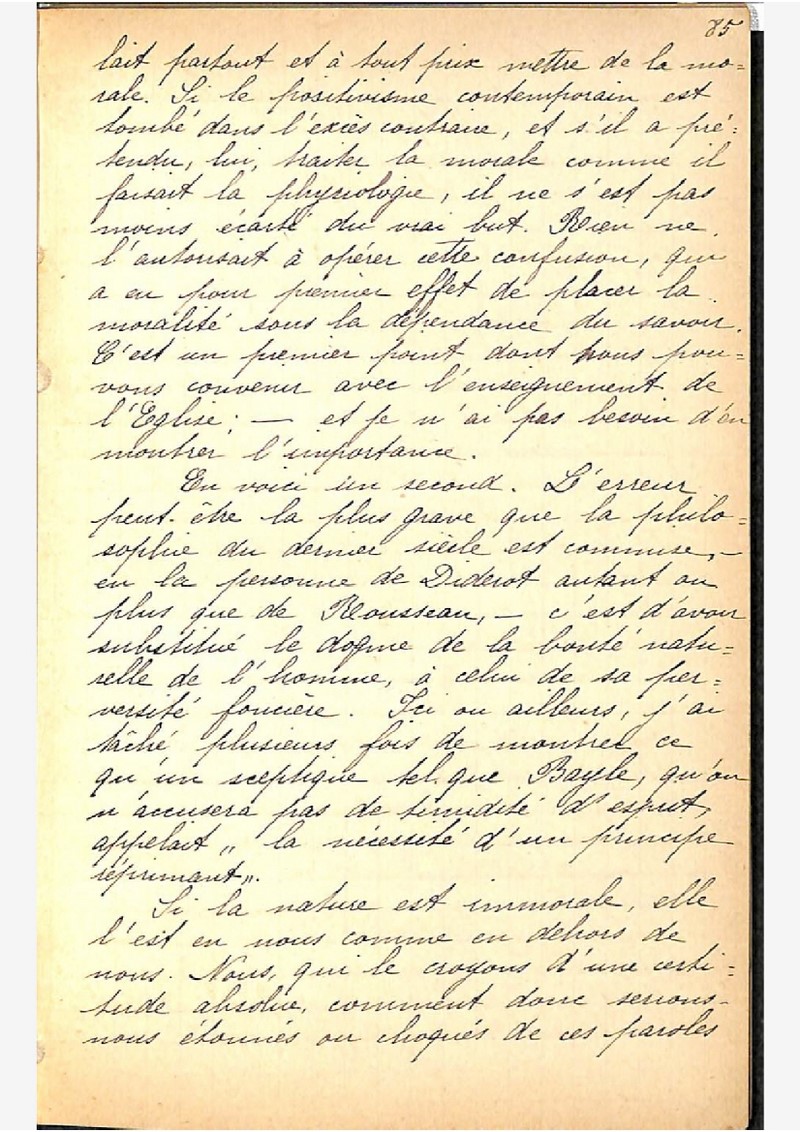 85
lait partout et à tout prix mettre de la mo=
rale. Si le positivisme contemporain est
tombé dans l'excès contraire, et s'il a pré=
tendu, lui, traiter la morale comme il
faisait la physiologie, il ne s'est pas
moins écarté du vrai but. Rien ne
l'autorisait à opérer cette confusion, qui
a eu pour premier effet de placer la
moralité sous la dépendance du savoir.
C'est un premier point dont nous pou=
vons convenir avec l'enseignement de
l'Eglise; — et je n'ai pas besoin d'en
montrer l'importance.
En voici un second. L'erreur
peut-être la plus grave que la philo=
sophie du dernier siècle est commise, —
en la personne de Diderot autant ou
plus que de Rousseau, — c'est d'avoir
substitué le dogme de la bonté natu=
relle de l'homme, à celui de sa per=
versité foncière. Ici ou ailleurs, j'ai
tâché plusieurs fois de montrer ce
qu'un sceptique tel que Bayle, qu'on
n'accusera pas de timidité d'esprit,
appelait „ la nécessité d'un principe
réprimant„.
Si la nature est immorale, elle
l'est en nous comme en dehors de
nous. Nous, qui le croyons d'une certi=
tude absolue, comment donc serions-
nous étonnés ou choqués de ces paroles